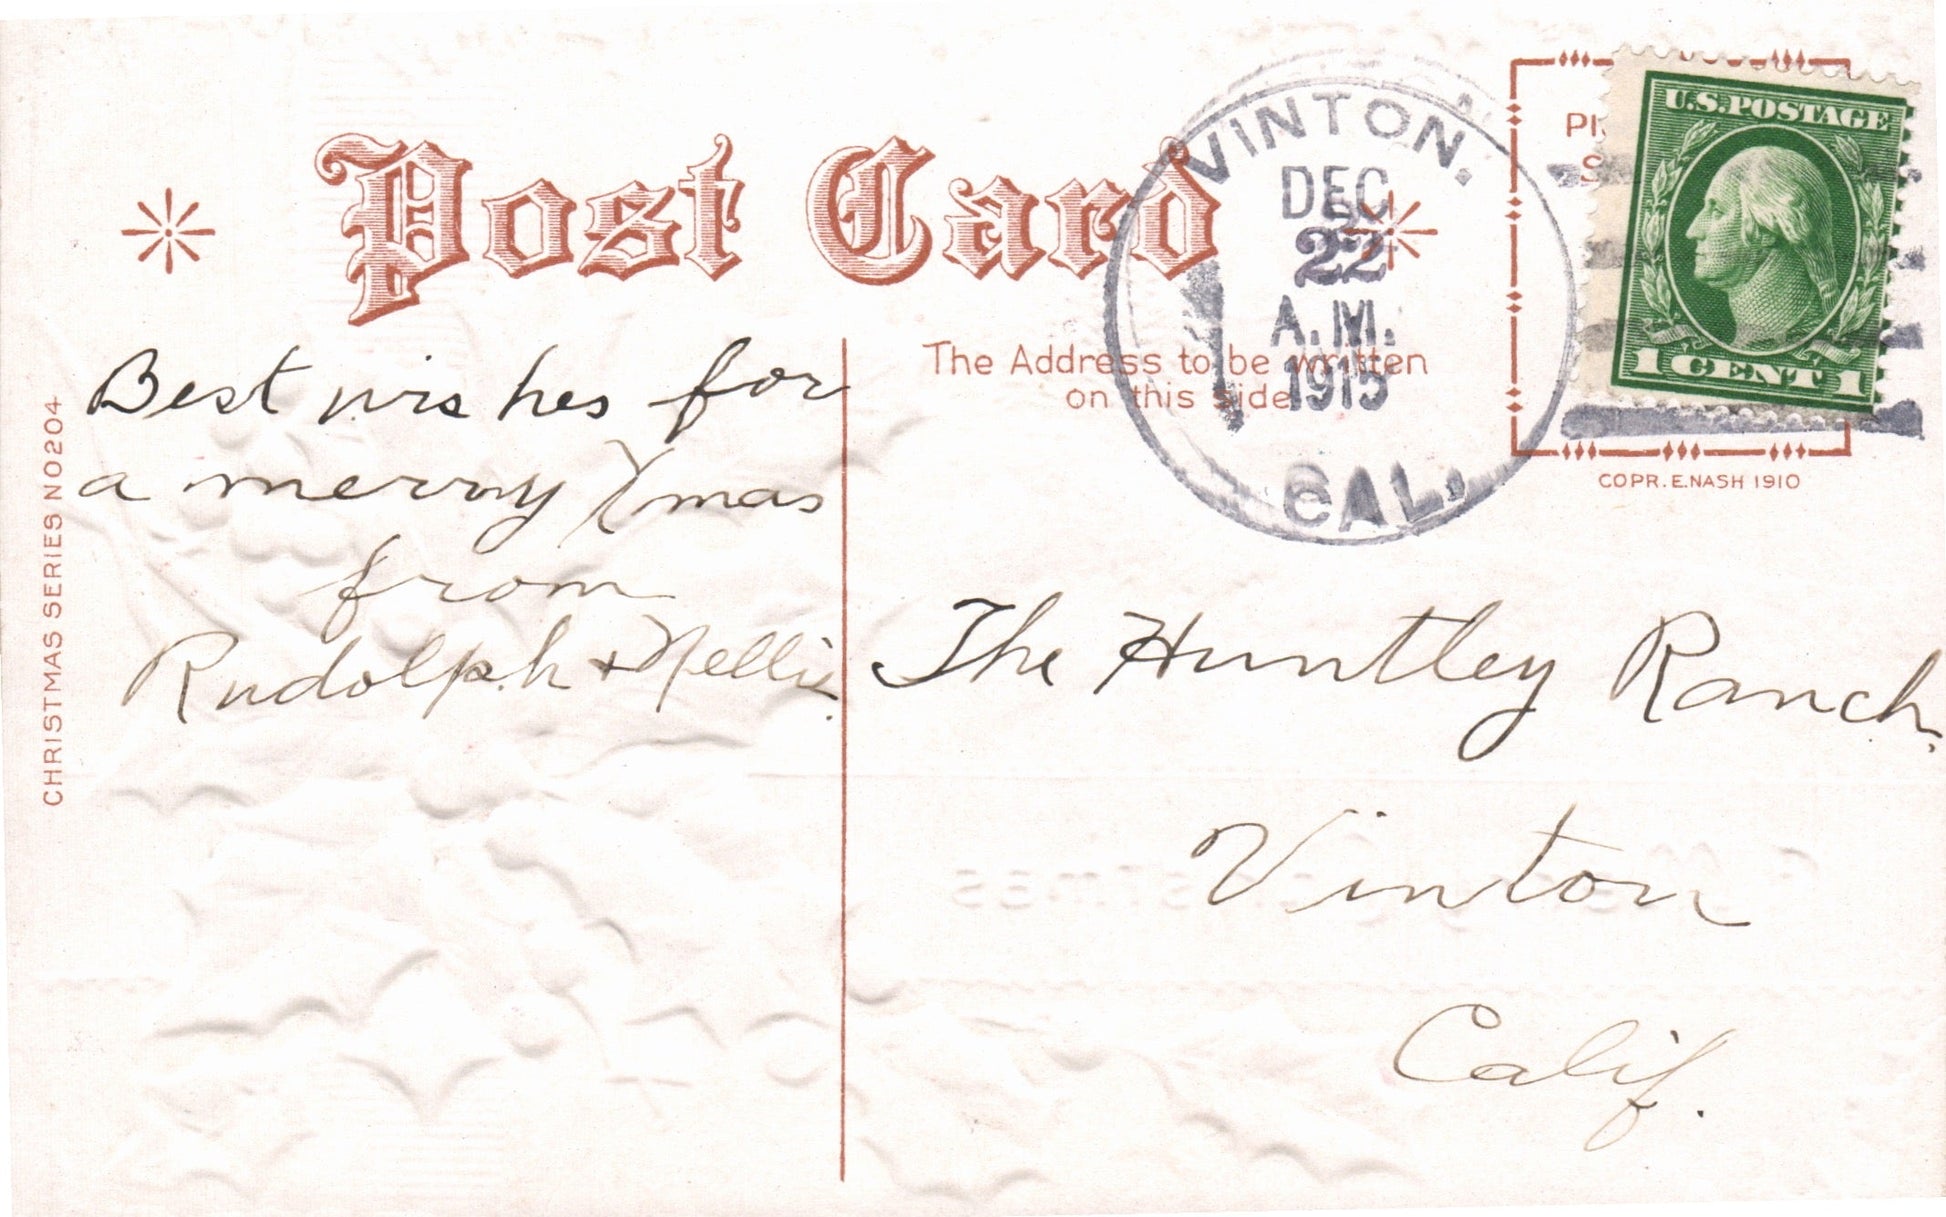 Post Card
VINTON.
DEC
22
A.M.
1915
CAL.
U.S. POSTAGE
1 CENT 1
COPR. E. NASH 1910
CHRISTMAS SERIES NO 204
The Address to be written
on this side
Best wishes for
a merry Xmas
from
Rudolph + Nellie.
The Huntley Ranch.
Vinton
Calif.